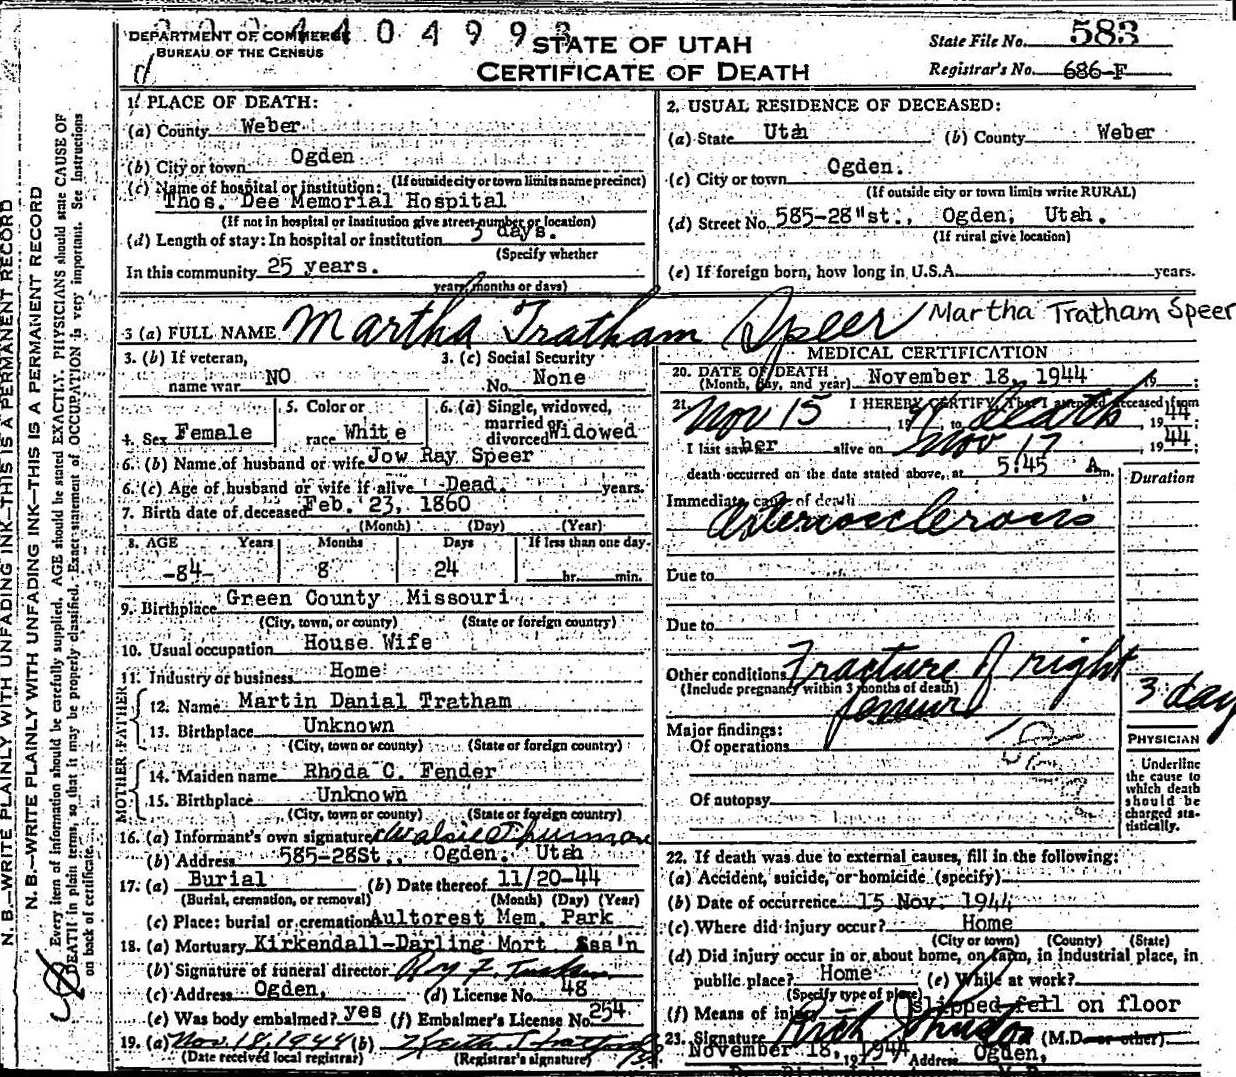 DEPARTMENT OF COMMERCE
BUREAU OF THE CENSUS
STATE OF UTAH
CERTIFICATE OF DEATH
State File No. 583
Registrar's No. 686-F
N. B.—WRITE PLAINLY WITH UNFADING INK—THIS IS A PERMANENT RECORD
N. B.—WRITE PLAINLY WITH UNFADING INK—THIS IS A PERMANENT RECORD
Every item of information should be carefully supplied. AGE should be stated EXACTLY. PHYSICIANS should state CAUSE OF
DEATH in plain terms, so that it may be properly classified. Exact statement of OCCUPATION is very important. See Instructions
on back of certificate.
1. PLACE OF DEATH:
(a) County Weber
(b) City or town Ogden
(If outside city or town limits name precinct)
(c) Name of hospital or institution:
Thos. Dee Memorial Hospital
(If not in hospital or institution give street number or location)
(d) Length of stay: In hospital or institution 3 days.
(Specify whether
In this community 25 years.
years, months or days)
2. USUAL RESIDENCE OF DECEASED:
(a) State Utah (b) County Weber
(c) City or town Ogden.
(If outside city or town limits write RURAL)
(d) Street No. 585-28"st., Ogden, Utah.
(If rural give location)
(e) If foreign born, how long in U.S.A. years.
3 (a) FULL NAME Martha Tratham Speer Martha Tratham Speer
3. (b) If veteran,
name war NO
3. (c) Social Security
No. None
4. Sex Female
5. Color or
race White
6. (a) Single, widowed,
married or
divorced Widowed
6. (b) Name of husband or wife Jow Ray Speer
6. (c) Age of husband or wife if alive Dead. years.
7. Birth date of deceased Feb. 23, 1860
(Month) (Day) (Year)
8. AGE Years Months Days If less than one day
-84- 8 24 hr. min.
9. Birthplace Green County Missouri
(City, town, or county) (State or foreign country)
10. Usual occupation House Wife
11. Industry or business Home
FATHER
12. Name Martin Danial Tratham
13. Birthplace Unknown
(City, town or county) (State or foreign country)
MOTHER
14. Maiden name Rhoda C. Fender
15. Birthplace Unknown
(City, town or county) (State or foreign country)
16. (a) Informant's own signature Thurman
(b) Address 585-28St., Ogden, Utah
17. (a) Burial (b) Date thereof 11/20-44
(Burial, cremation, or removal) (Month) (Day) (Year)
(c) Place: burial or cremation Aultorest Mem. Park
18. (a) Mortuary Kirkendall-Darling Mort Sss'n
(b) Signature of funeral director Roy F.
(c) Address Ogden, (d) License No. 48
(e) Was body embalmed? yes (f) Embalmer's License No. 254
19. (a) Nov. 18, 1944 (b)
(Date received local registrar) (Registrar's signature)
MEDICAL CERTIFICATION
20. DATE OF DEATH
(Month, day, and year) November 18, 1944 19 ;
21. I HEREBY CERTIFY, That I attended deceased from
Nov 15, 1944, to death, 1944;
I last saw her alive on Nov 17, 1944;
death occurred on the date stated above, at 5:45 A m.
Duration
Immediate cause of death
Arteriosclerosis
Due to
Due to
Other conditions Fracture of right
(Include pregnancy within 3 months of death)
femur
3 day
Major findings:
Of operations
Of autopsy
PHYSICIAN
Underline
the cause to
which death
should be
charged sta-
tistically.
22. If death was due to external causes, fill in the following:
(a) Accident, suicide, or homicide (specify)
(b) Date of occurrence 15 Nov. 1944
(c) Where did injury occur? Home
(City or town) (County) (State)
(d) Did injury occur in or about home, on farm, in industrial place, in
public place? Home (e) While at work?
(Specify type of place)
(f) Means of injury slipped fell on floor
23. Signature Rich Johnston (M.D. or other)
November 18, 1944 Address Ogden,